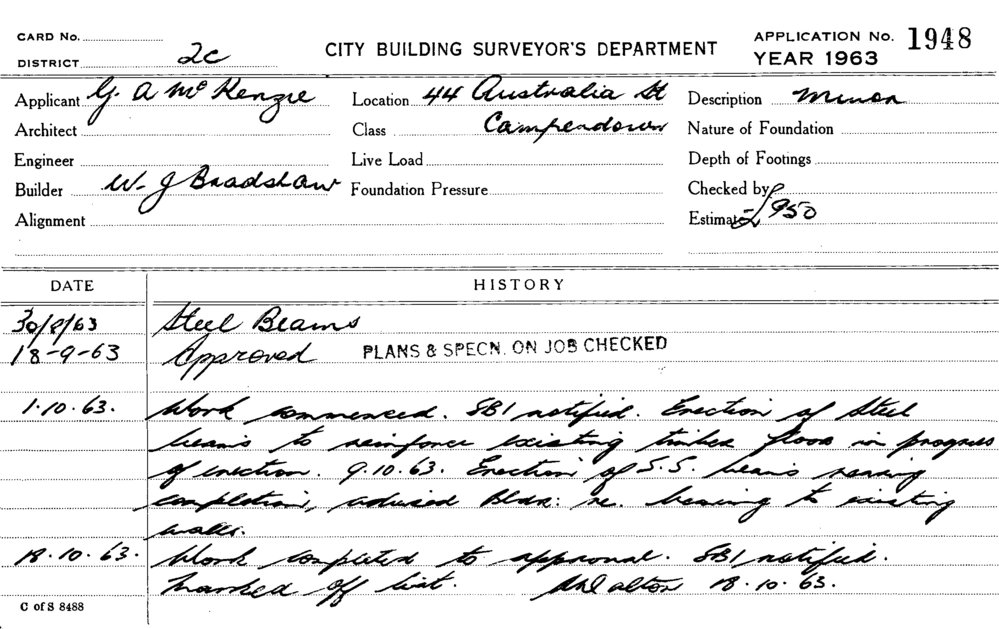 CARD No.
DISTRICT 2c
CITY BUILDING SURVEYOR'S DEPARTMENT
APPLICATION No. 1948
YEAR 1963
Applicant G. A McKenzie
Location 44 Australia St
Description Minor
Architect
Class Camperdown
Nature of Foundation
Engineer
Live Load
Depth of Footings
Builder W. J Bradshaw
Foundation Pressure
Checked by
Alignment
Estimate £950
DATE HISTORY
30/8/63 Steel Beams
18-9-63 Approved PLANS & SPECN. ON JOB CHECKED
1.10.63. Work commenced. SBI notified. Erection of Steel
beams to reinforce existing timber floor in progress
of erection. 9.10.63. Erection of S.S. beams nearing
completion, advised Bldr: re. bearing to existing
walls.
18.10.63. Work completed to approval. SBI notified.
Marked off list. 18.10.63.
C of S 8488